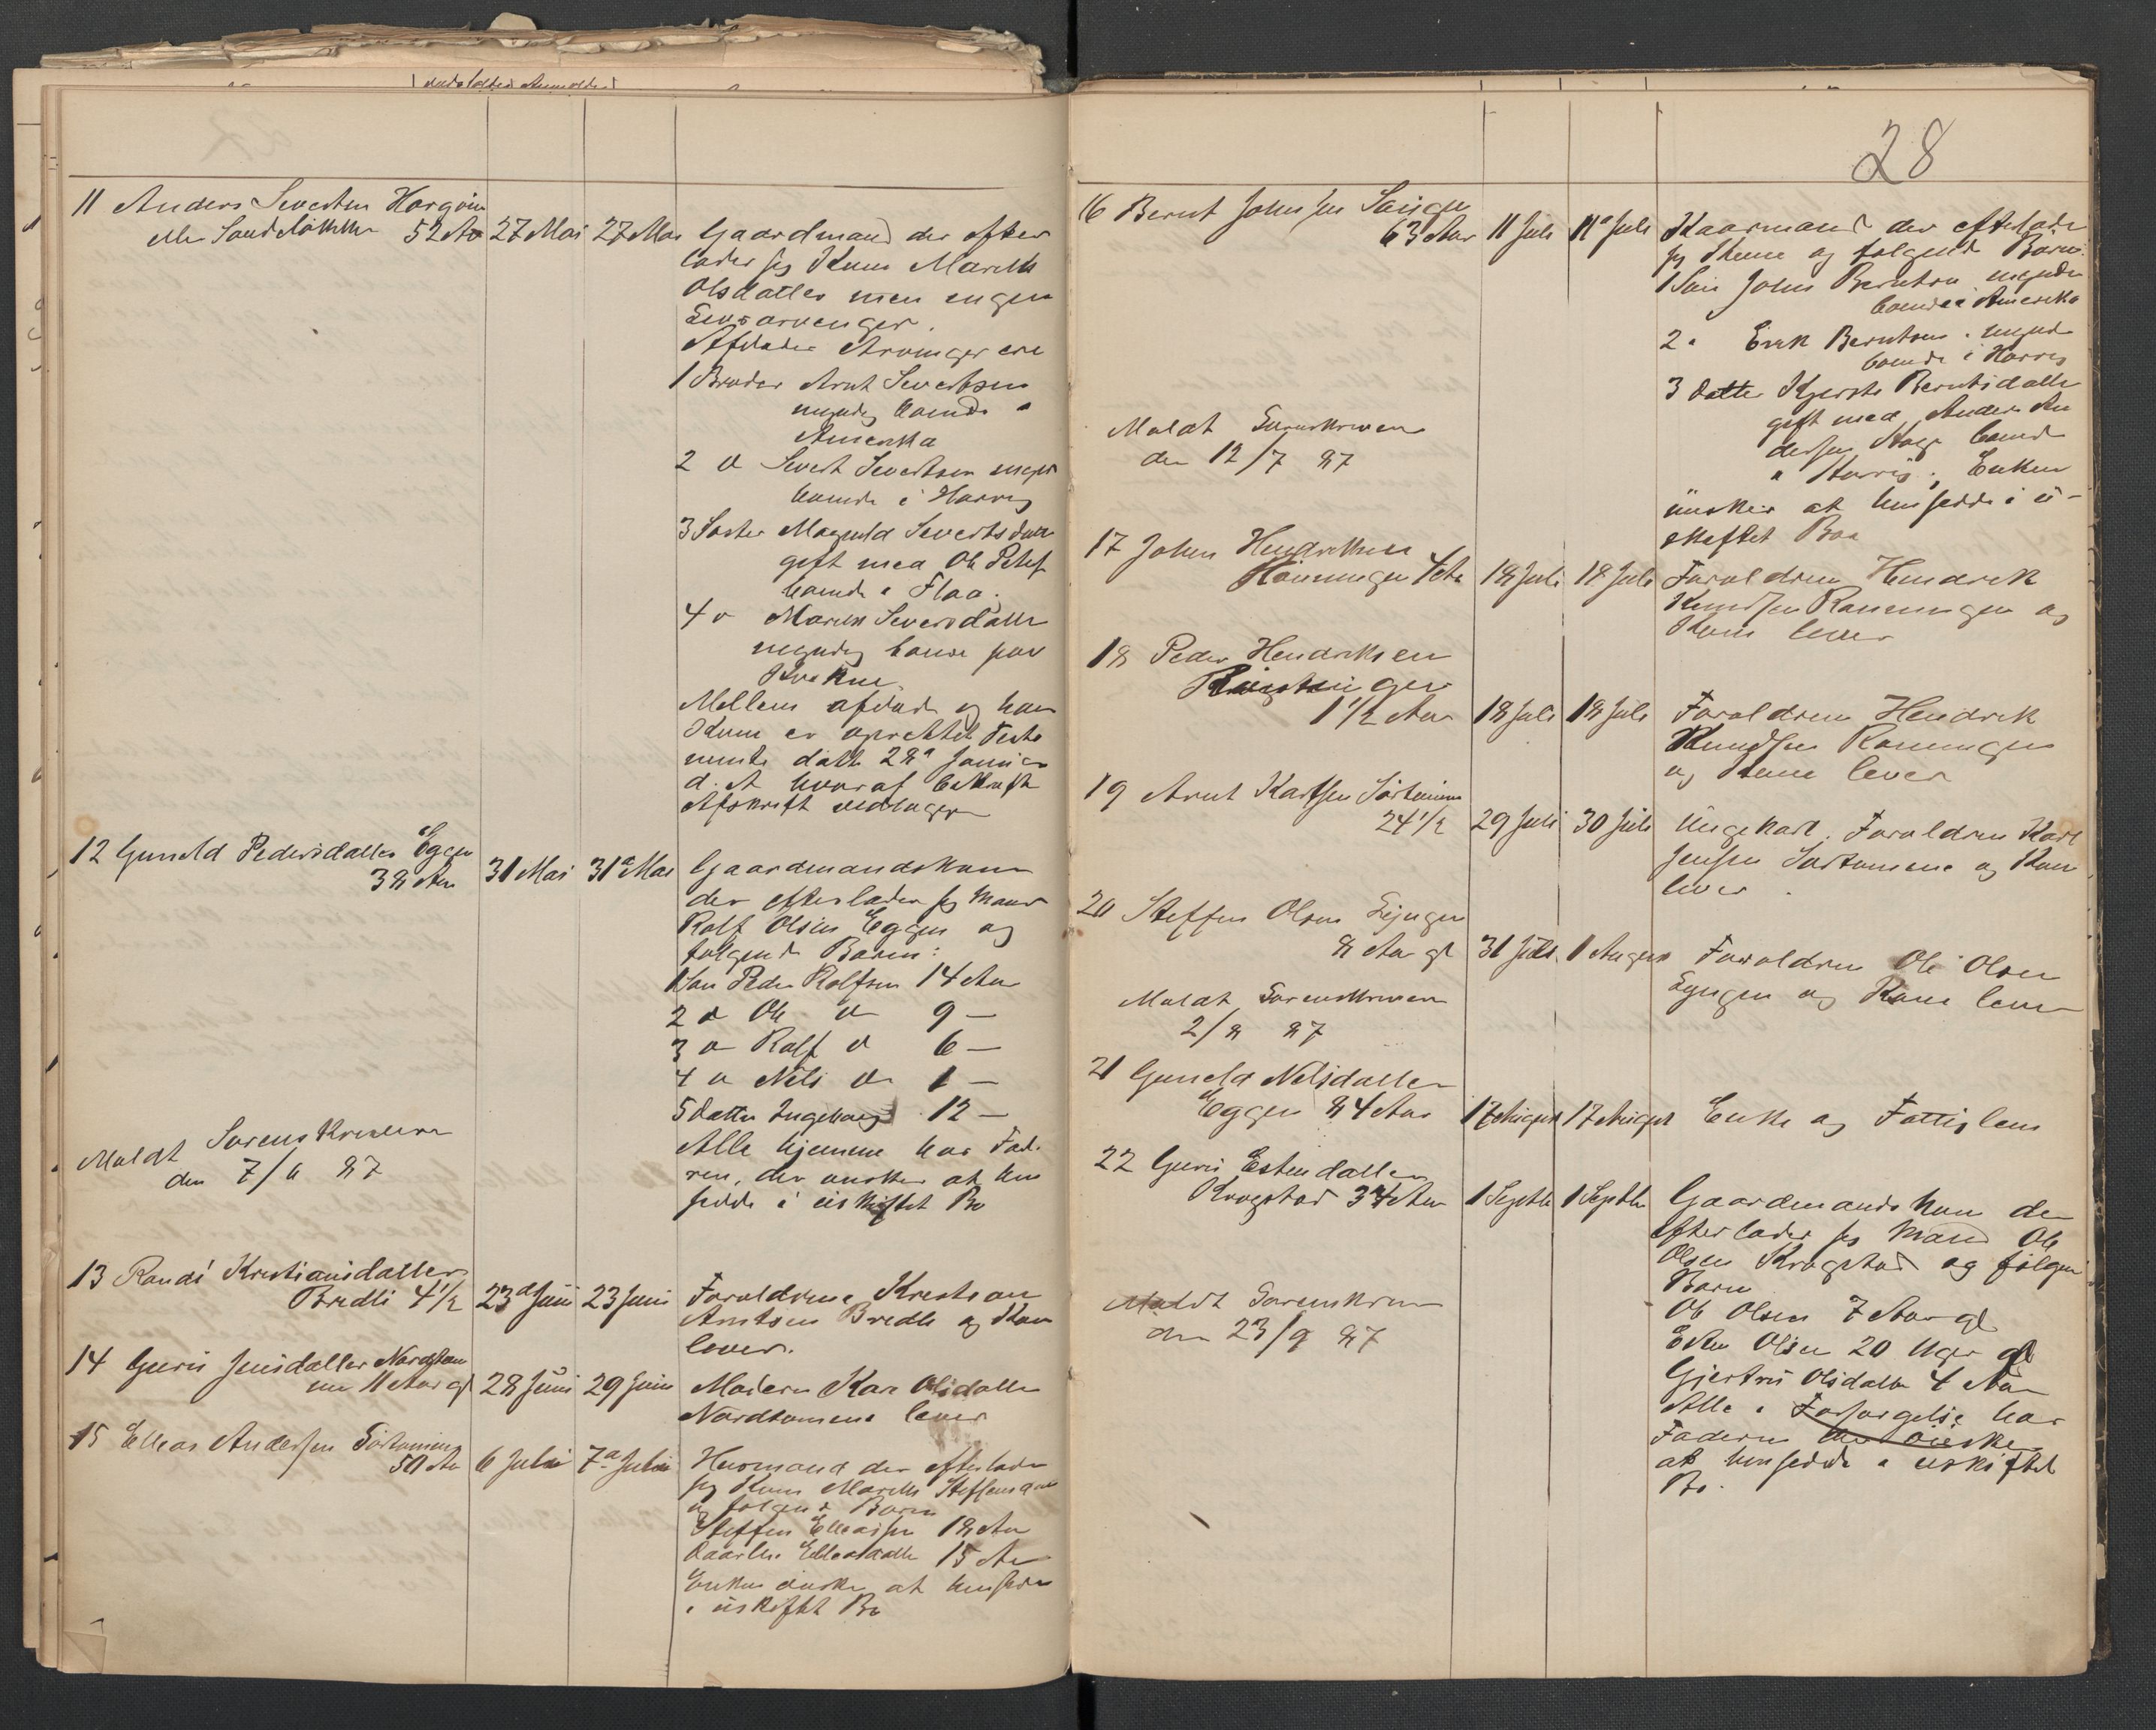 11 Anders Severtsen Horgøien
eller Sandløkken 52 Aar 27 Mai 27 Mai Gaardmand der efter
lader sig Kone Marith
Olsdatter men ingen
Livsarvenger.
Afdødes Arvinger ere
1 Broder Arnt Severtsen
myndig boende i
Amerika
2 d Sivert Severtsen myndi
boende i Horrig
3 Søster Magnild Severtsdatt
gift med Ole Peters
boende i Flaa.
4 d Marith Seversdatter
myndig boende paa
Mellem afdøde og hans
Kone er oprettet Testa
mente datt 28de Januar
d. A hvoraf bekræftet
Afskrift vedlægges
12 Gunild Pedersdatter Eggen
38 Aar 31 Mai 31te Mai Gaardmandskone
der efterlader sig Mand
Rolf Olsen Eggen og
følgende Børn:
1 Søn Peder Rolfsen 14 Aar
2 d Ole d 9 —
3 d Rolf d 6 —
4 d Nils d 1 —
5 datter Ingeborg 12 —
Alle hjemme hos Fad.
ren, der ønsker at hen
sidde i uskiftet Bo
Meldt Sorenskriveren
den 7/6 87
13 Randi Kristiansdatter
Bredli 4 1/2 23de Juni 23 Juni Foreldrene Kristian
Arntsen Bredli og Kone
lever.
14 Guru Jensdatter Nordtøm
me 11 Aar gl 28 Juni 29 Juni Moderen Kari Olsdatter
Nordtømme lever
15 Elleas Andersen Sørtømme
50 Aar 6 Juli 7de Juli Husmand der efterlader
sig Kone Marith Steffensdatt
og følgende Børn
Steffen Elleassen 18 Aar
Elleasdatter 15 Aar
Enken ønsker at hensidde
i uskiftet Bo
28
16 Bernt Johnsen
63 Aar 11 Juli 11te Juli Kaarmand der efterlader
sig Kone og følgende Børn:
1 Søn John Berntsen myndi
boende i Amerika
2 " Erik Berntsen myndi
boende i Horrig
3 datter Kjersti Berntsdatter
gift med Anders An
dersen Hage boende
i Horrig; Enken
ønsker at hensidde i u-
skiftet Boe
Meldt Sorenskriveren
den 12/7 87
17 John Hendriksen
Rønningen 4 Aar 18 Juli 18 Juli Foreldrene Hendrik
Knudsen Rønningen og
Kone lever
18 Peder Hendriksen
1 1/2 Aar 18 Juli 18 Juli Foreldrene Hendrik
Knudsen Rønningen
og Kone lever
19 Arnt Karlsen Sørtømme
24 1/2 29 Juli 30 Juli Ungekarl. Foreldrene Karl
Jensen Sørtømme og Kone
lever.
20 Steffen Olsen Eyngen
8 Aar gl 31 Juli 1 August Foreldrene Ole Olsen
Eyngen og Kone lever
Meldt Sorenskriveren
2/8 87
21 Gunild Nilsdatter
Eggen 84 Aar 17 August 17 August Enke og Fattiglem
22 Guru Estendatter
Krogstad 34 Aar 1 Septbr 1 Septbr Gaardmandskone der
efterlader sig Mand Ole
Olsen Krogstad og følgen
Børn
Ole Olsen 7 Aar gl
Esten Olsen 20 Uger gl
Gjertru Olsdatter 4 Aar
Alle i Forsørgelse hos
Faderen der ønsker
at hensidde i uskiftet
Bo.
Meldt Sorenskriveren
den 23/9 87